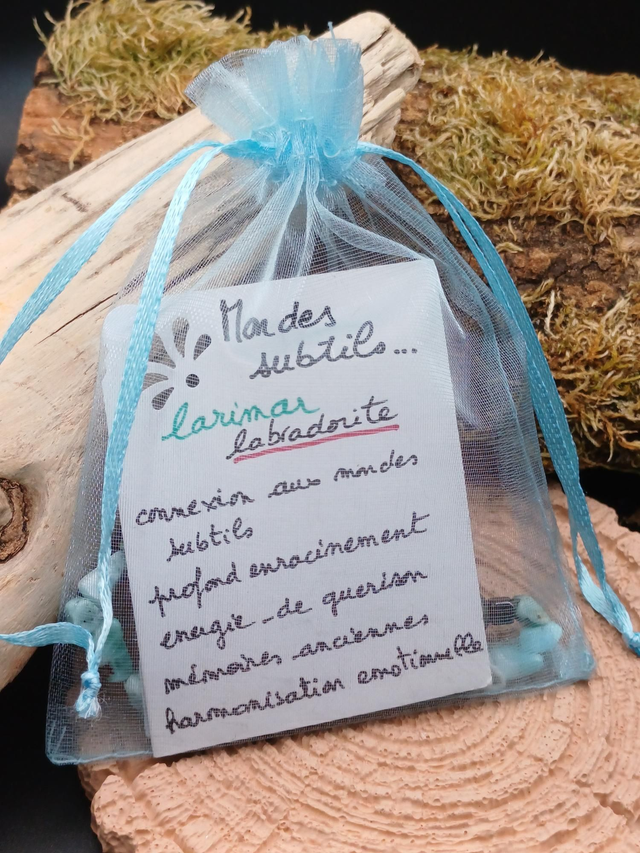 Mondes
subtils...
larimar
labradorite
connexion aux mondes
subtils
profond enracinement
energie de guerison
mémoires anciennes
harmonisation emotionnelle